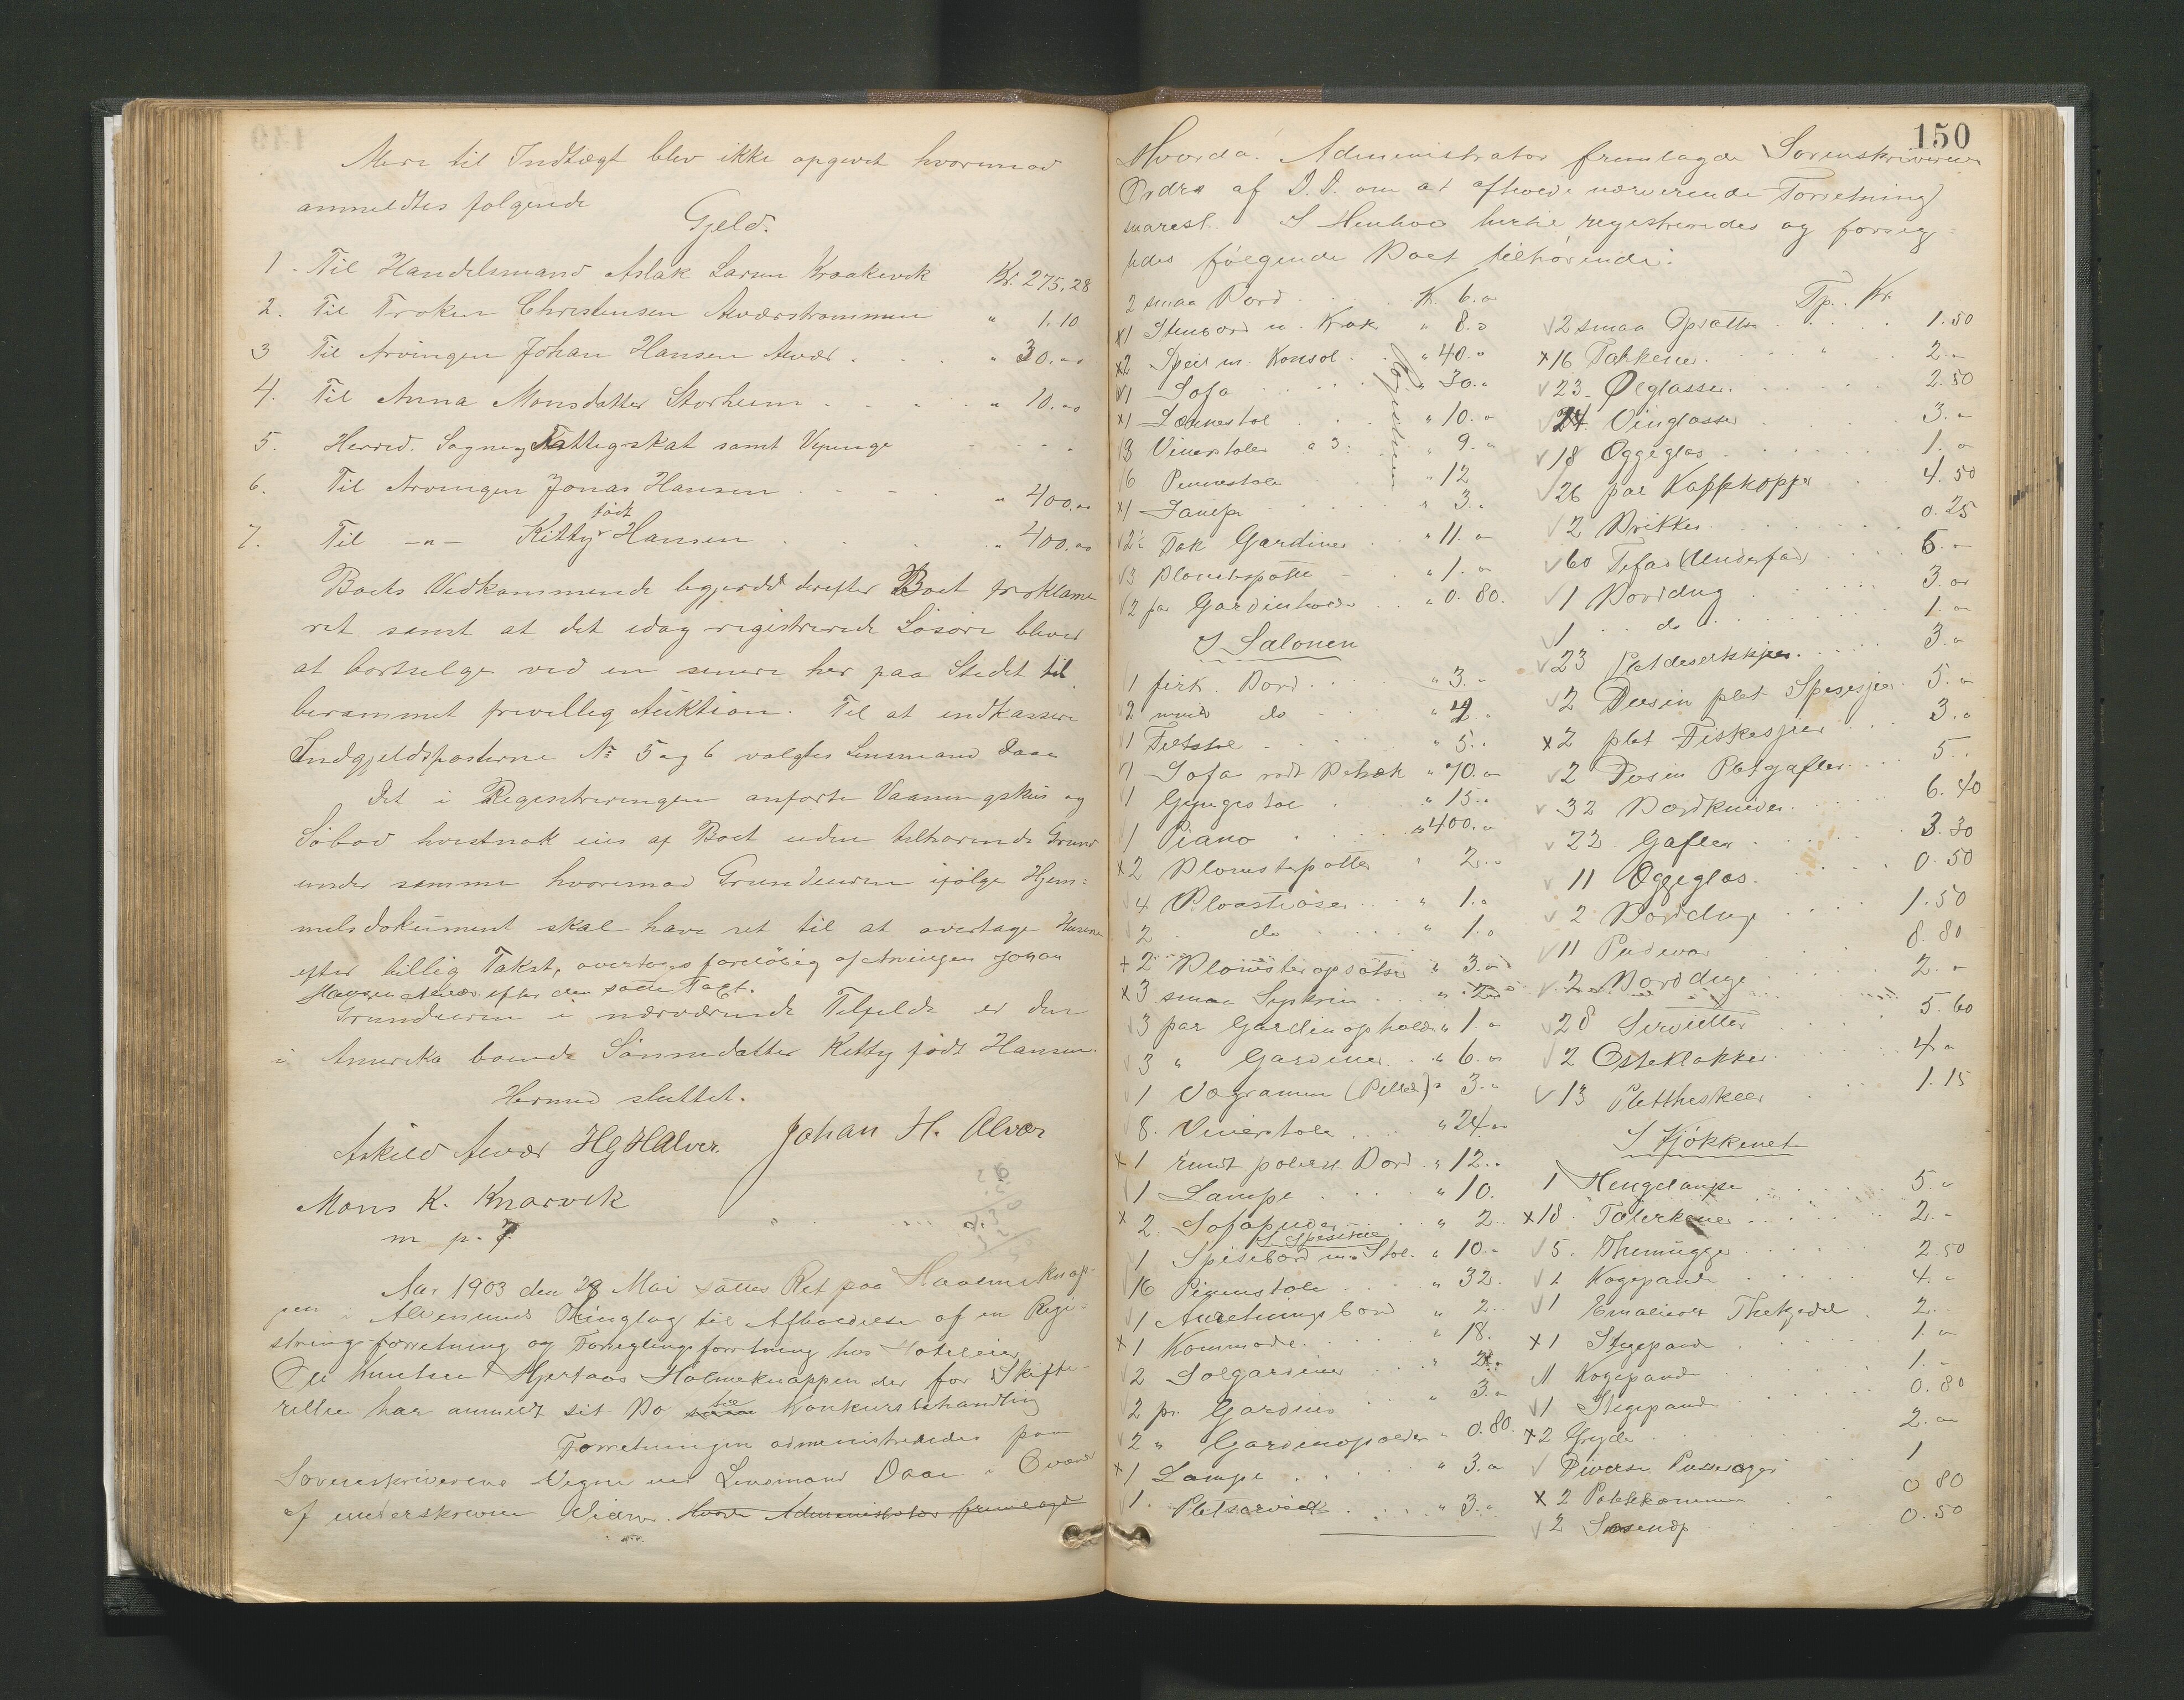 Mere til Indtægt blev ikke opgivet hvorimod
anmeldtes følgende
Gjeld.
1. Til Handelsmand Aslak Larsen Kraakevik Kr. 275,28
2. Til Froken Christensen Alværstrømmen " 1.10
3 Til Arvingen Johan Hansen Alvær " 30.00
4. Til Anna Monsdatter Storheim " 10.00
5. Herred. Sogne og Fattigskat samt Vepenge
6. Til Arvingen Jonas Hansen " 400.00
7. Til -"- Kitty født Hansen " 400.00
Boets Vedkommende begjerede derefter Boet proklame
ret samt at det idag registrerede Løsøre bliver
at bortselge ved en senere her paa Stedet til
berammet frivillig Auktion. Til at indkassere
Indgjeldsposterne No 5 og 6 valgtes Lensmand Daae
Det i Registreringen anførte Vaaningshus og
Søbod hvistnok eies af Boet uden tilhørende Grund
under samme hvorimod Grundeieren ifølge Hjem=
melsdokument skal have ret til at overtage Husene
efter billig Takst, overtages foreløbig af Arvingen Johan
Hansen Alvær efter den satte Taxt.
Grundeieren i nærværende Tilfelde er den
i Amerika boende Sønnedatter Kitty født Hansen.
Hermed sluttet.
Askild Alvær HgHAlver. Johan H. Alvær
Mons K. Knarvik
m p. f
Aar 1903 den 28 Mai sattes Ret paa Holmeknap-
pen i Alversunds Thinglag til Afholdelse af en Regi=
strings-forretning og Forseglingsforretning hos Hoteleier
Ole Knutsen Hjertaas Holmeknappen der for Skifte-
retten har anmeldt sit Bo til Konkursbehandling
Forretningen administreredes paa
Sorenskriverens Vegne ved Lensmand Daae i Overvær
af underskrevne Vidner. Hvorda Administrator fremlagde
150
Hvorda Administrator fremlagde Sorenskriverens
Ordre af D. D. om at afholde nærværende Forretning
snarest. I Henhold hertil registreredes og forseg=
ledes følgende Boet tilhørende:
2 smaa Bord Kr. 6.00
x1 Stenbord m. Krak " 8.0
x2 Speil m. Konsol " 40."
v1 Sofa " 30.
x1 Lænestol " 10.
13 Vinerstoler a 3. " 9.
v6 Pinnestole " 12
x1 Lampe " 3.
v2½ Fak Gardiner " 11.
v3 Blomsterpotte " 1.
v2 par Gardinholder " 0.80.
I Salonen
1 firk. Bord " 3.
v2 mind do
v1 Feltstol " 5.
1 Sofa rødt Betræk " 70.
1 Gyngestol " 15.
1 Piano " 400.
x2 Blomsterpotter " 2.
v4 " 1.
2 do " 1.
+2 Blomsteropsatser " 3.
x3 smaa Syskrin
v3 par Gardinopholder " 1.
v3 " Gardiner " 6.
v1 (Billed) " 3.
8. Vinerstole " 24.
x1 rundt polert Bord " 12.
v1 Lampe " 10.
x 2. Sofapuder " 2.
I Spisesal
1 Spisebord m. Stol. " 10.
16 Pinnestole " 32.
v1 Anretningsbord " 2.
x1 Kommode " 18.
v2 Solgardiner
v2 pr. Gardiner " 3.
v2 " Gardinopholder " 0.80.
x1 Lampe " 3.
v1. Pletservice " 3.
Tp. Kr.
v2 smaa Opsatser 1.50
x16 Tallerkener 2.
v23. Ølglasser 2.50
24. Vinglasser 3.
v18 Æggeglas 1.
v26 par Kaffekopper 4.50
v2 Brikker 0.25
v60 Tefad (Underfad) 6.
v1 Borddug 3.00
v1 do 1.
v23 Pletdesertskjer 3.
v2 Dusin plet Spiseskjer 5.
x2 plet Fiskeskjer 3.
v2 Dusin Pletgafler 5.
v32 Bordkniver 6.40
v22 Gafler 3.30
v11 Æggeglas 0.50
v2 Borddug 1.50
v11 Pudevar 8.80
v2 Borddug 2.
v28 Servietter 5.60
v2 Osteklokker 4.
v13 Pletteskeer 1.15
I Kjøkkenet
1 Hengelampe 5.
x18 Talerkener 2.
v5. Themugger 2.50
v2 Kogepande 4.
v1 Emalieret Thekjedel 2.
x1 Stegepande 1.
v1 Kogepande 1.
v1 Stegepande 0.80
x2 Gryde 2.
v Diverse 1
x2 0 80
v2 0.50